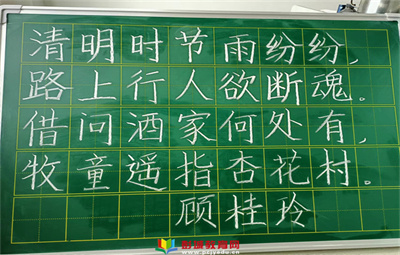 清明时节雨纷纷，
路上行人欲断魂。
借问酒家何处有，
牧童遥指杏花村。
顾桂玲